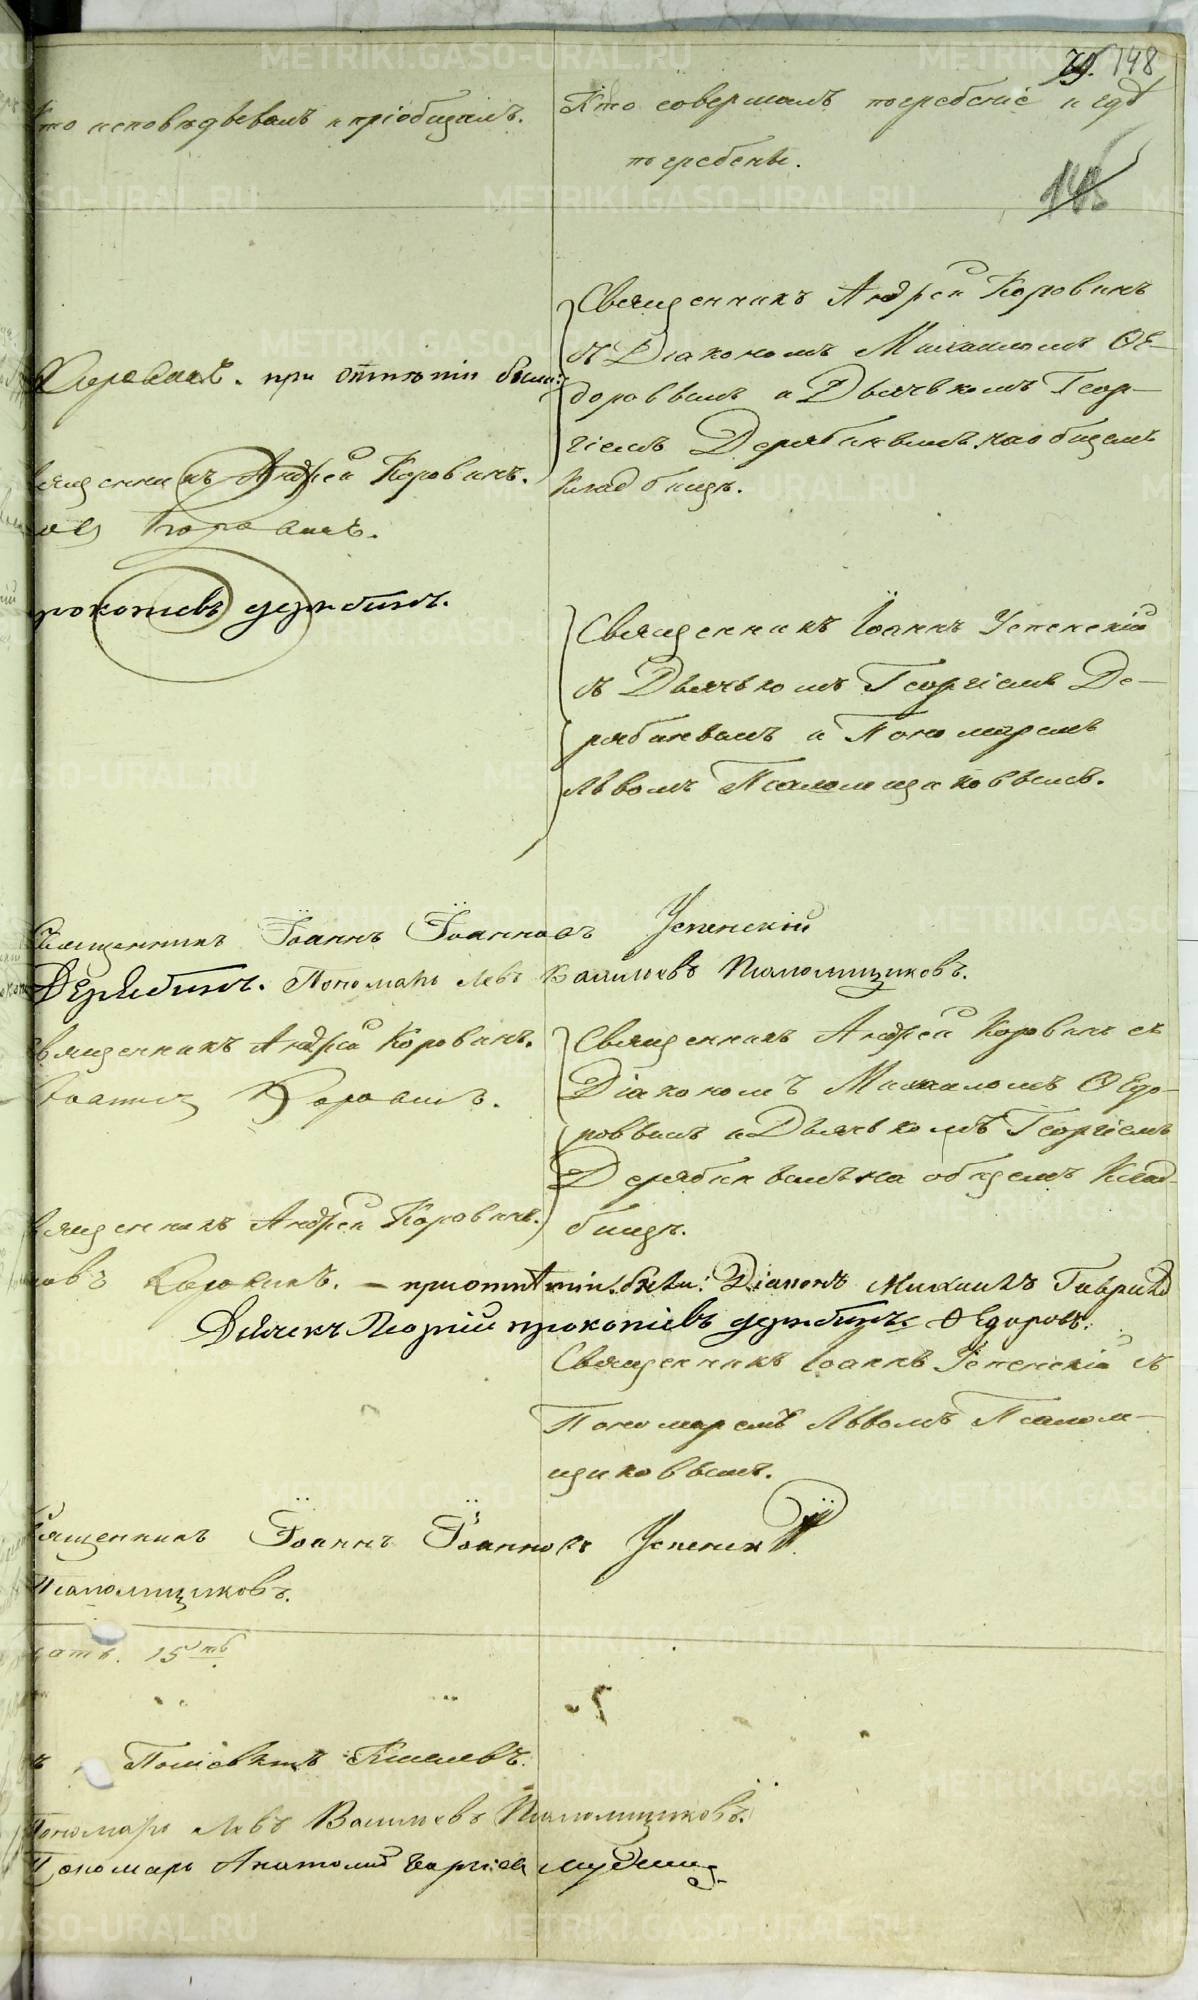 79. 148
то исповѣдывалъ и пріобщалъ.
Кто совершалъ погребеніе и гдѣ
погребены.
148
Священникъ Андрей Коровинъ
съ Діакономъ Михаиломъ Ѳе-
доровымъ и Дьячкомъ Геор-
гіемъ Дерябинымъ на общемъ
кладбищѣ.
Коровинъ. при отпѣтіи были:
вященникъ Андрей Коровинъ.
Коровинъ.
рокопіевъ Дерябинъ.
Священникъ Іоаннъ Успенскій
съ Дьячкомъ Георгіемъ Де-
рябинымъ и Пономаремъ
Львомъ Псаломщиковымъ.
Священникъ Іоаннъ Іоанновъ Успенскій
Дерябинъ. Пономарь Левъ Васильевъ Псаломщиковъ.
вященникъ Андрей Коровинъ.
Іоанновъ Коровинъ.
Священникъ Андрей Коровинъ съ
Діакономъ Михаиломъ Ѳедо-
ровымъ и Дьячкомъ Георгіемъ
Дерябинымъ на общемъ клад-
бищѣ.
вященникъ Андрей Коровинъ.
новъ Коровинъ. – при отпѣтіи были: Діаконъ Михаилъ Гаврил
Дьячекъ Георгій Прокопіевъ Дерябинъ. Ѳедоровъ.
Священникъ Іоаннъ Успенскій съ
Пономаремъ Львомъ Псалом-
щиковымъ.
Священникъ Іоаннъ Іоанновъ Успенскій
Псаломщиковъ.
цать. 15ть
ъ Киселевъ.
Пономарь Левъ Васильевъ Псаломщиковъ.
Пономарь Анатолій